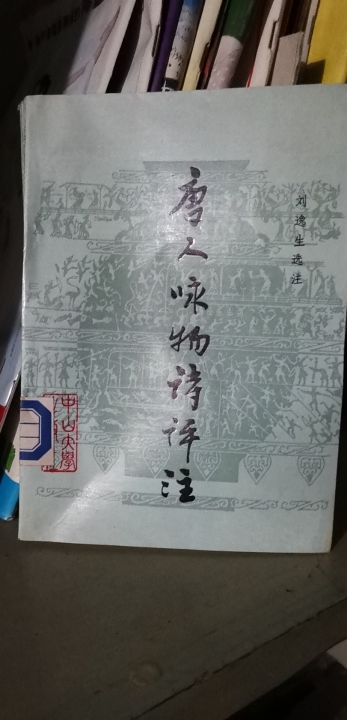 唐人咏物诗评注
刘逸生选注
中山大学